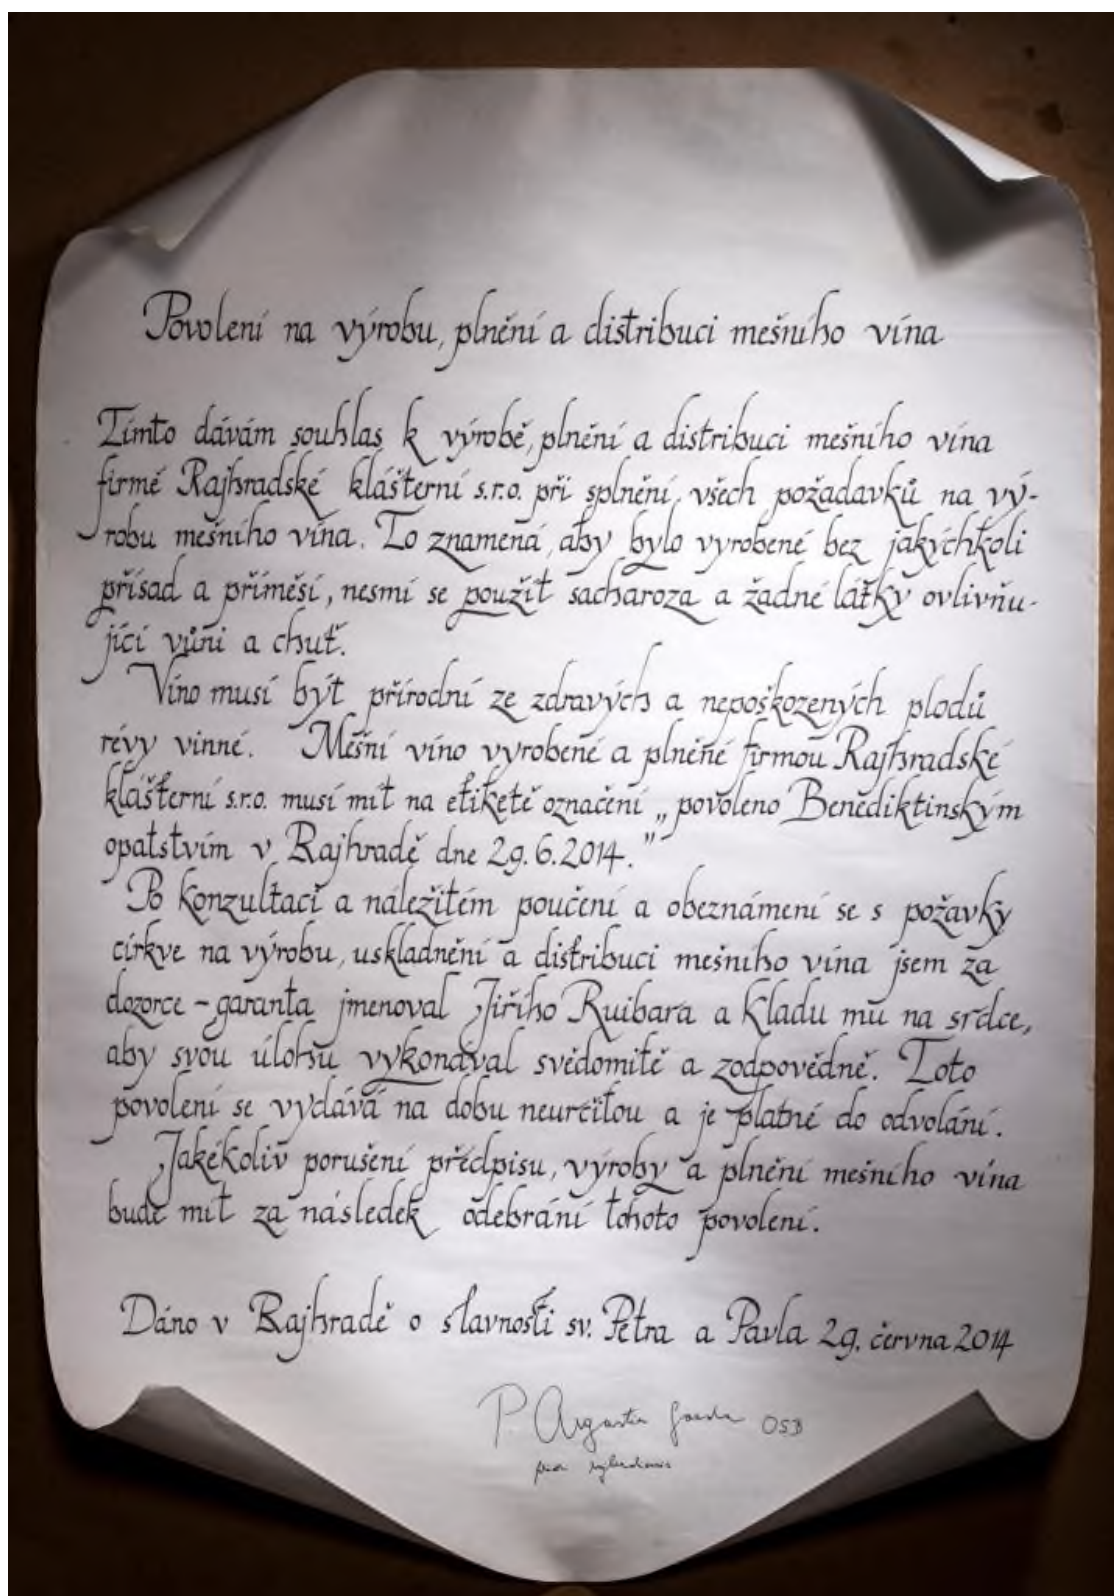 Povolení na výrobu, plnění a distribuci mešního vína
Tímto dávám souhlas k výrobě, plnění a distribuci mešního vína
firmě Rajhradské klášterní s.r.o. při splnění všech požadavků na vý-
robu mešního vína. To znamená, aby bylo vyrobené bez jakýchkoli
přísad a příměsí, nesmí se použít sacharoza a žádné látky ovlivňu-
jící vůni a chuť.
Víno musí být přírodní ze zdravých a nepoškozených plodů
révy vinné. Mešní víno vyrobené a plněné firmou Rajhradské
klášterní s.r.o. musí mít na etiketě označení „povoleno Benediktinským
opatstvím v Rajhradě dne 29.6.2014."
Po konzultaci a náležitém poučení a obeznámení se s požavky
církve na výrobu, uskladnění a distribuci mešního vína jsem za
dozorce - garanta jmenoval Jiřího Ruibara a kladu mu na srdce,
aby svou úlohu vykonával svědomitě a zodpovědně. Toto
povolení se vydává na dobu neurčitou a je platné do odvolání.
Jakékoliv porušení předpisu, výroby a plnění mešního vína
bude mít za následek odebrání tohoto povolení.
Dáno v Rajhradě o slavnosti sv. Petra a Pavla 29. června 2014
P. OSB